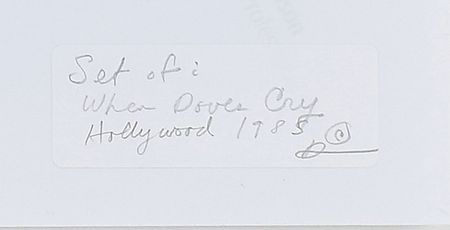 Set of:
When Doves Cry
Hollywood 1985
©